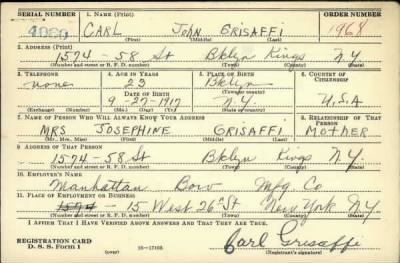 SERIAL NUMBER 1. NAME (Print) ORDER NUMBER
CARL John GRISAFFI 1968
(First) (Middle) (Last)
2. ADDRESS (Print)
1574 - 58 St Bklyn Kings N.Y.
(Number and street or R. F. D. number) (Town) (County) (State)
3. TELEPHONE 4. AGE IN YEARS 5. PLACE OF BIRTH 6. COUNTRY OF CITIZENSHIP
none 23 Bklyn
DATE OF BIRTH (Town or county)
9-27-1917 N.Y. U.S.A
(Exchange) (Number) (Mo.) (Day) (Yr.) (State or country)
7. NAME OF PERSON WHO WILL ALWAYS KNOW YOUR ADDRESS 8. RELATIONSHIP OF THAT PERSON
MRS JOSEPHINE GRISAFFI MOTHER
(Mr., Mrs., Miss) (First) (Middle) (Last)
9. ADDRESS OF THAT PERSON
1574 - 58 St Bklyn Kings N.Y.
(Number and street or R. F. D. number) (Town) (County) (State)
10. EMPLOYER'S NAME
Manhattan Bow Mfg. Co
11. PLACE OF EMPLOYMENT OR BUSINESS
1574 - 15 West 26th St New York N.Y
(Number and street or R. F. D. number) (Town) (County) (State)
I AFFIRM THAT I HAVE VERIFIED ABOVE ANSWERS AND THAT THEY ARE TRUE.
REGISTRATION CARD
D. S. S. Form 1 (over) 16-17105 Carl Grisaffi
(Registrant's signature)